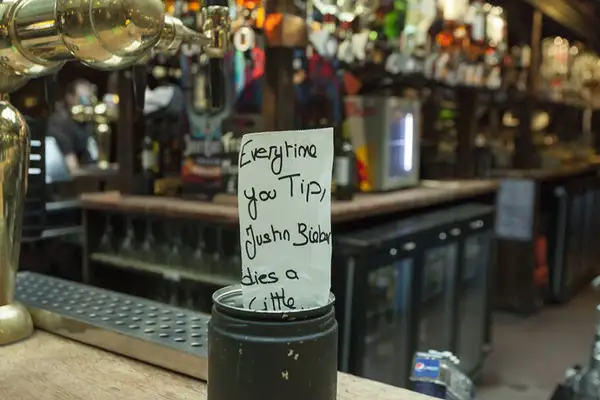 Everytime
you Tip,
Justin Bieber
dies a
little.